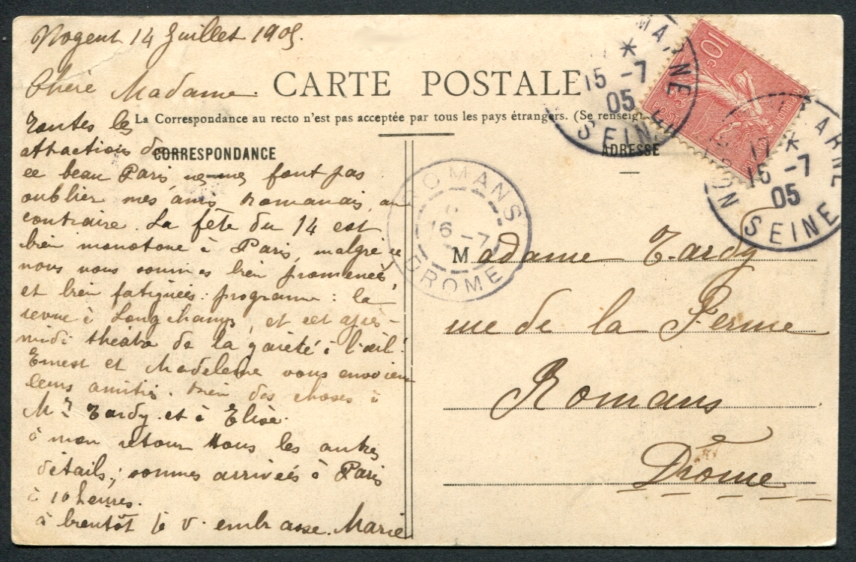 Nogent 14 Juillet 1905
Chère Madame
CARTE POSTALE
La Correspondance au recto n'est pas acceptée par tous les pays étrangers. (Se renseign
CORRESPONDANCE
ADRESSE
Toutes les
attractions de
ce beau Paris ne font pas
oublier mes amis Romanais, au
contraire. La fête du 14 est
bien monotone à Paris, malgré ce
nous nous sommes bien promenées
et bien fatiguées : programme : la
revue à Longchamps, et cet après-
midi théâtre de la gaieté à l'œil!
Ernest et Madeleine vous envoient
leurs amitiés. bien des choses à
Mr Tardy et à Elise.
à mon retour tous les autres
détails; sommes arrivées à Paris
à 10 heures.
à bientôt je v. embrasse. Marie
Madame Tardy
rue de la Ferme
Romans
Drôme
ROMANS
16 -7
DROME
MARNE
15 -7
05
SEINE
10c
NOG
ARNE
15 -7
05
SEINE